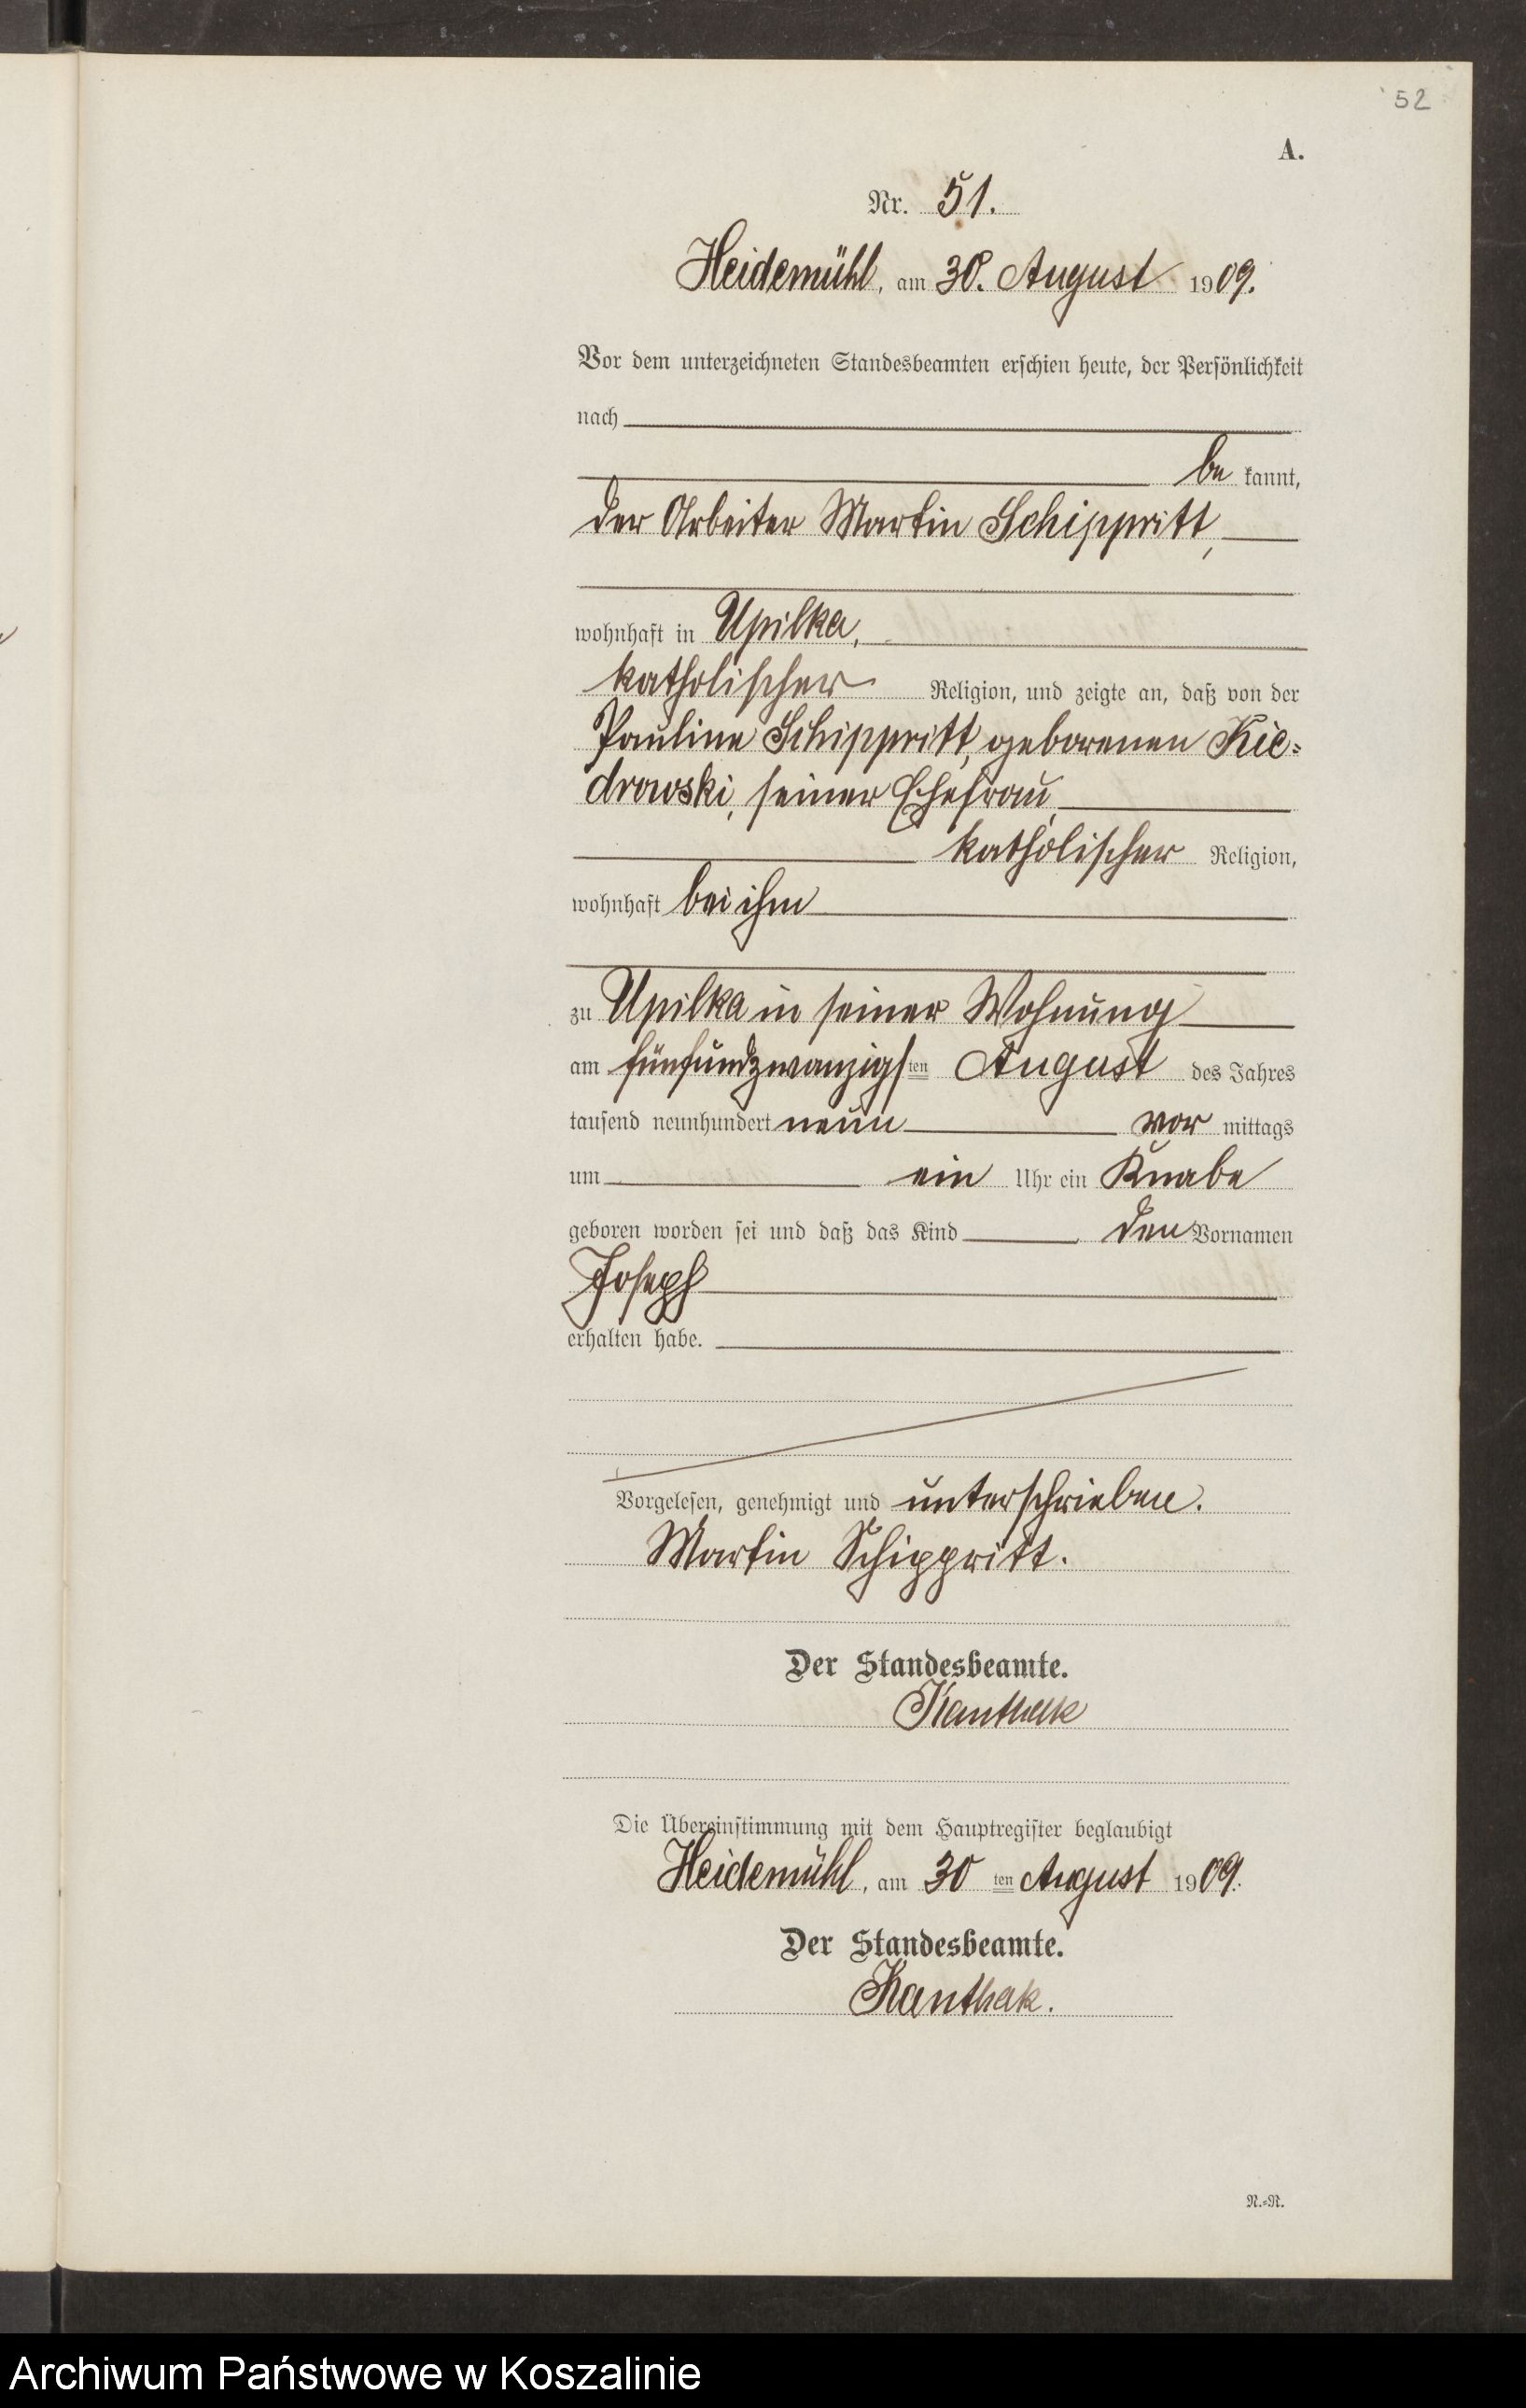 52
A.
Nr. 51.
Heidemühl, am 30. August 1909.
Vor dem unterzeichneten Standesbeamten erschien heute, der Persönlichkeit
nach
be kannt,
der Arbeiter Martin Schippritt,
wohnhaft in Upilka,
katholischer Religion, und zeigte an, daß von der
Pauline Schippritt, geborenen Kie=
drowski, seiner Ehefrau,
katholischer Religion,
wohnhaft bei ihm
zu Upilka in seiner Wohnung
am fünfundzwanzigsten August des Jahres
tausend neunhundert neun vor mittags
um ein Uhr ein Knabe
geboren worden sei und daß das Kind den Vornamen
Joseph
erhalten habe.
Vorgelesen, genehmigt und unterschrieben.
Martin Schippritt.
Der Standesbeamte.
Kanthak
Die Übereinstimmung mit dem Hauptregister beglaubigt
Heidemühl, am 30 ten August 1909.
Der Standesbeamte.
Kanthak.
N.=R.
Archiwum Państwowe w Koszalinie